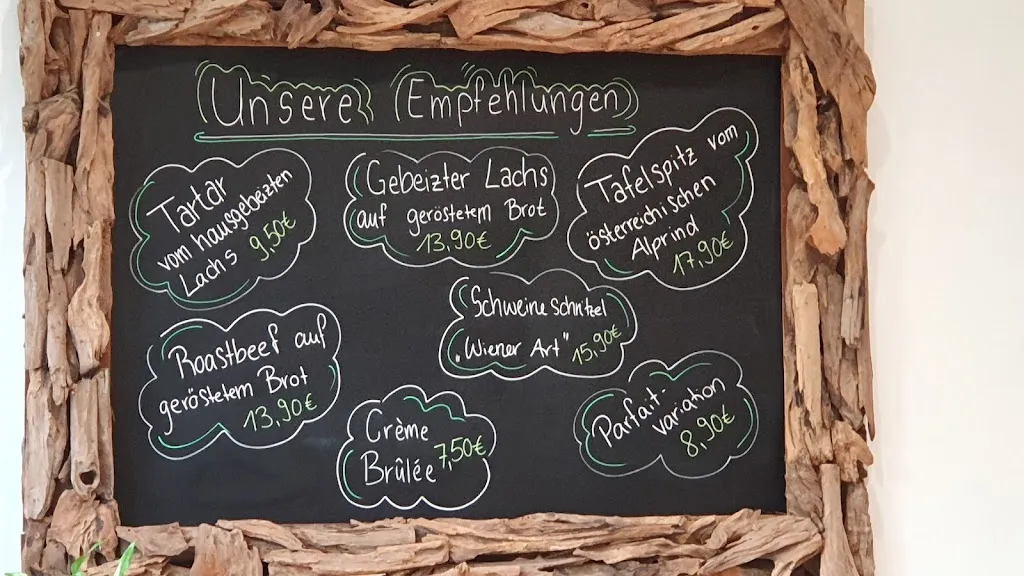 Unsere Empfehlungen
Tartar
vom hausgebeizten
Lachs 9,50€
Gebeizter Lachs
auf geröstetem Brot
13,90€
Tafelspitz vom
österreichischen
Alprind
17,90€
Roastbeef auf
geröstetem Brot
13,90€
Schweineschnitzel
„Wiener Art" 15,90€
Crème
Brûlée 7,50€
Parfait-
variation
8,90€